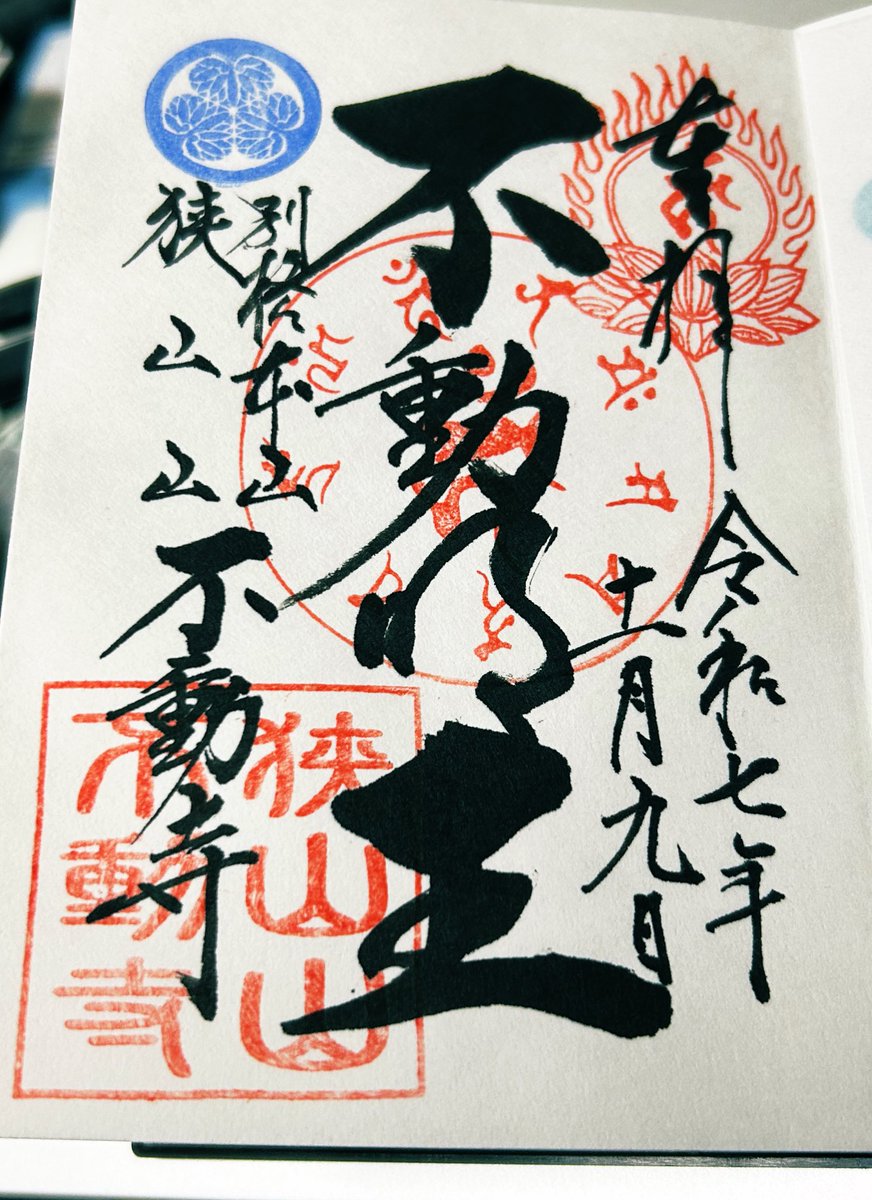 奉拝
令和七年
十一月九日
不動明王
別格本山
狭山山不動寺
狭山山
不動寺